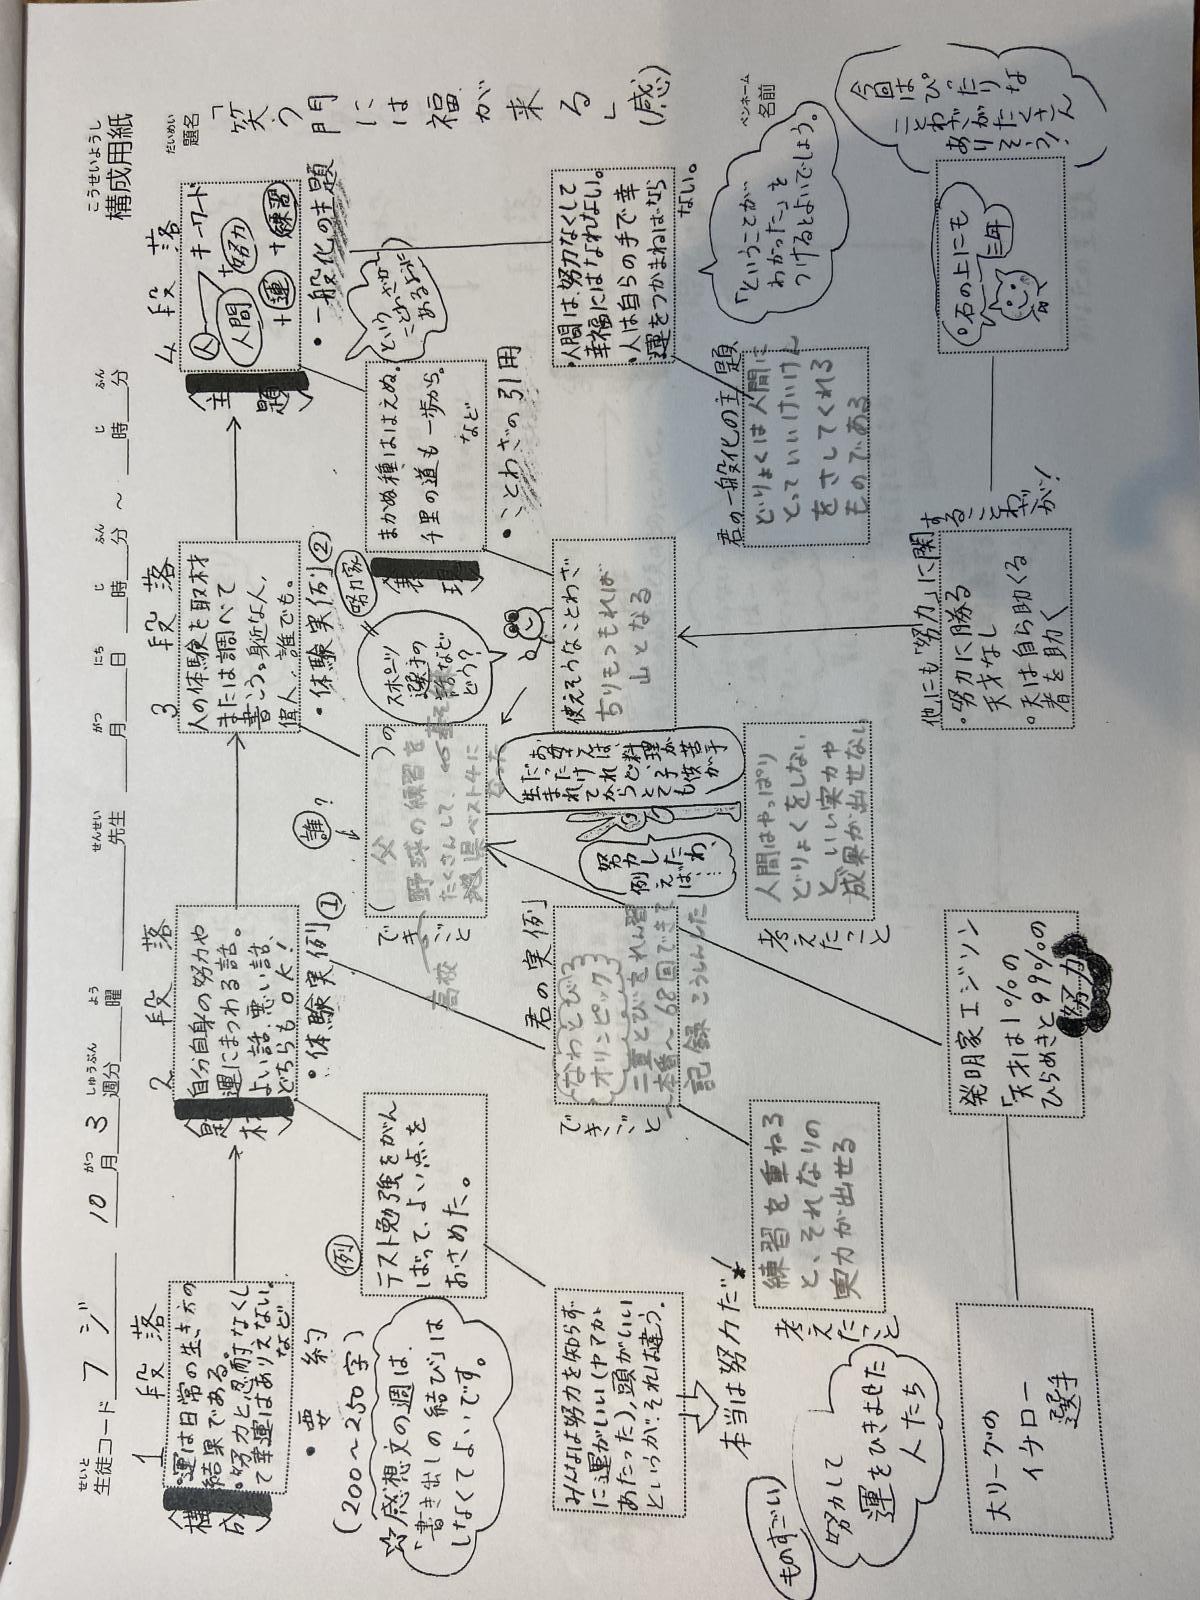 こうせいようし
構成用紙
だいめい
題名
「笑う門には福が来る」(感)
ペンネーム
名前
せいと
生徒コード フジ 10月 3週分 曜 先生 月 日 時 分 ～ 時 分
がつ しゅうぶん よう せんせい がつ にち じ ふん じ ふん
1 段落
構成
。運は日常の生き方の
結果である。
。努力と忍耐なくし
て幸運はありえない。
など
・要約
(200～250字)
☆感想文の週は、
「書き出しの結び」は
しなくてよいです。
例
テスト勉強をがん
ばって、よい点を
おさめた。
みんなは努力を知らず
に運がいい(ヤマカン
あたった)、頭がいい
というが、それは違う。
本当は努力だ!
ものすごい
努力して
運をひきよせた
人たち
大リーグの
イチロー
選手
2 段落
題材
自分自身の努力や
運にまつわる話。
よい話、悪い話、
どちらもOK!
・体験実例①
君の実例
できごと
なわとび
オリンピック
二重とびをれん習
～本番へ68回できて
記録こうしんした
考えたこと
練習を重ねる
と、それなりの
実力が出せる
発明家エジソン
「天才は1%の
ひらめきと99%の
努力」
3 段落
人の体験を取材
または調べて
書こう。身近な人、
偉人、誰でも。
・体験実例②
努力家
スポーツ
選手の
話など
どう?
誰?
( 父 )の
できごと
高校
野球の練習を
たくさんして、
県ベスト4に
なった
お母さんは、
料理が苦手
だったけれど、子供が
生まれてからとても
努力したわ、
例えば…
考えたこと
人間はやっぱり
どりょくをしない
と、いい実力や
成果が出せない
4 段落
主題
人 キーワード
人間 + 努力
+ 運 + 練習
・一般化の主題
表現
まかぬ種ははえぬ。
千里の道も一歩から。
など
という
ことわざが
あるように
・ことわざの引用
使えそうなことわざ
ちりもつもれば
山となる
・人間は、努力なくして
幸福にはなれない。
・人は自らの手で幸
運をつかまねばなら
ない。
「ということが
わかった」を
つけるとよいでしょう。
君の一般化の主題
どりょくは人間に
とっていいけいけん
をさしてくれる
ものである
他にも「努力」に関
することわざが!
・努力に勝る
天才なし
。天は自ら助くる
者を助く
。石の上にも
三年
今回は
ぴったりな
ことわざがたくさん
ありそう!